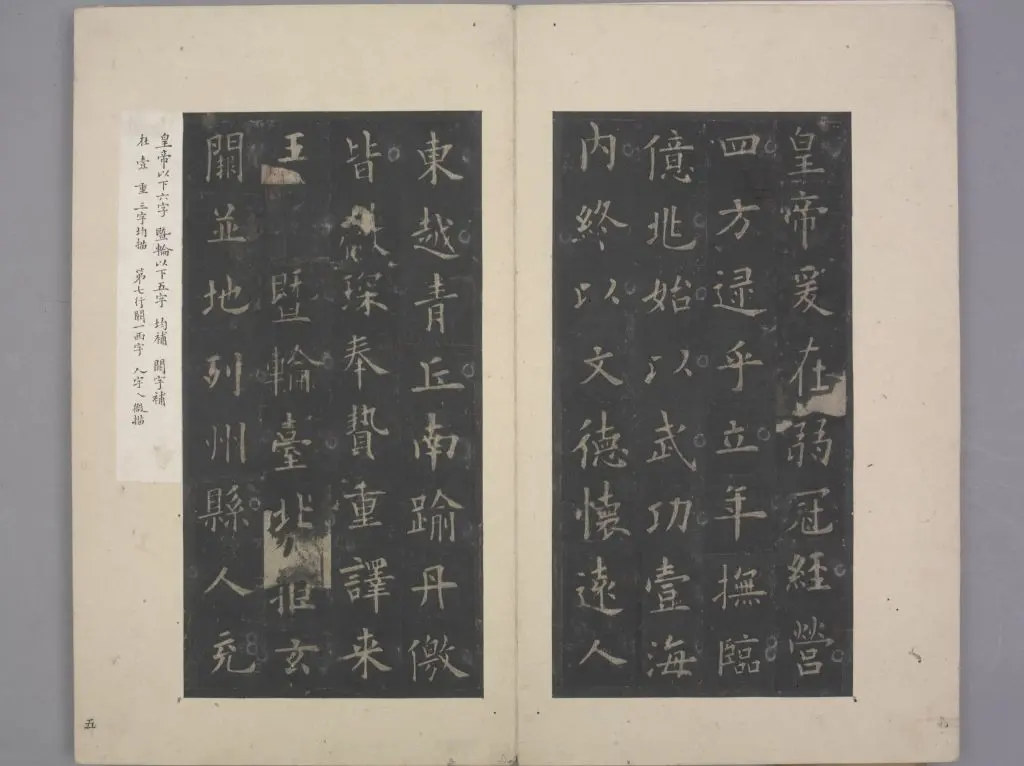 皇帝爰在弱冠經營
四方逮乎立年撫臨
億兆始以武功壹海
內終以文德懷遠人
東越青丘南踰丹儌
皆獻琛奉贄重譯来
王暨輪臺北拒玄
闕並地列州縣人充
皇帝以下六字 暨輪以下五字 均補 闕字補
在 壹 重 三字均描 第七行闕一西字 人字乀微描
五